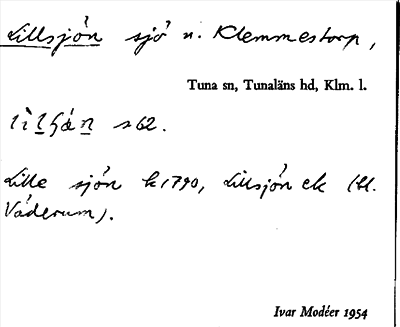 Lillsjön sjö n. Klemmestorp,
Tuna sn, Tunaläns hd, Klm. l.
s 62.
Lille sjön k 1790, Lillsjön ek (bl.
Väderum).
Ivar Modéer 1954